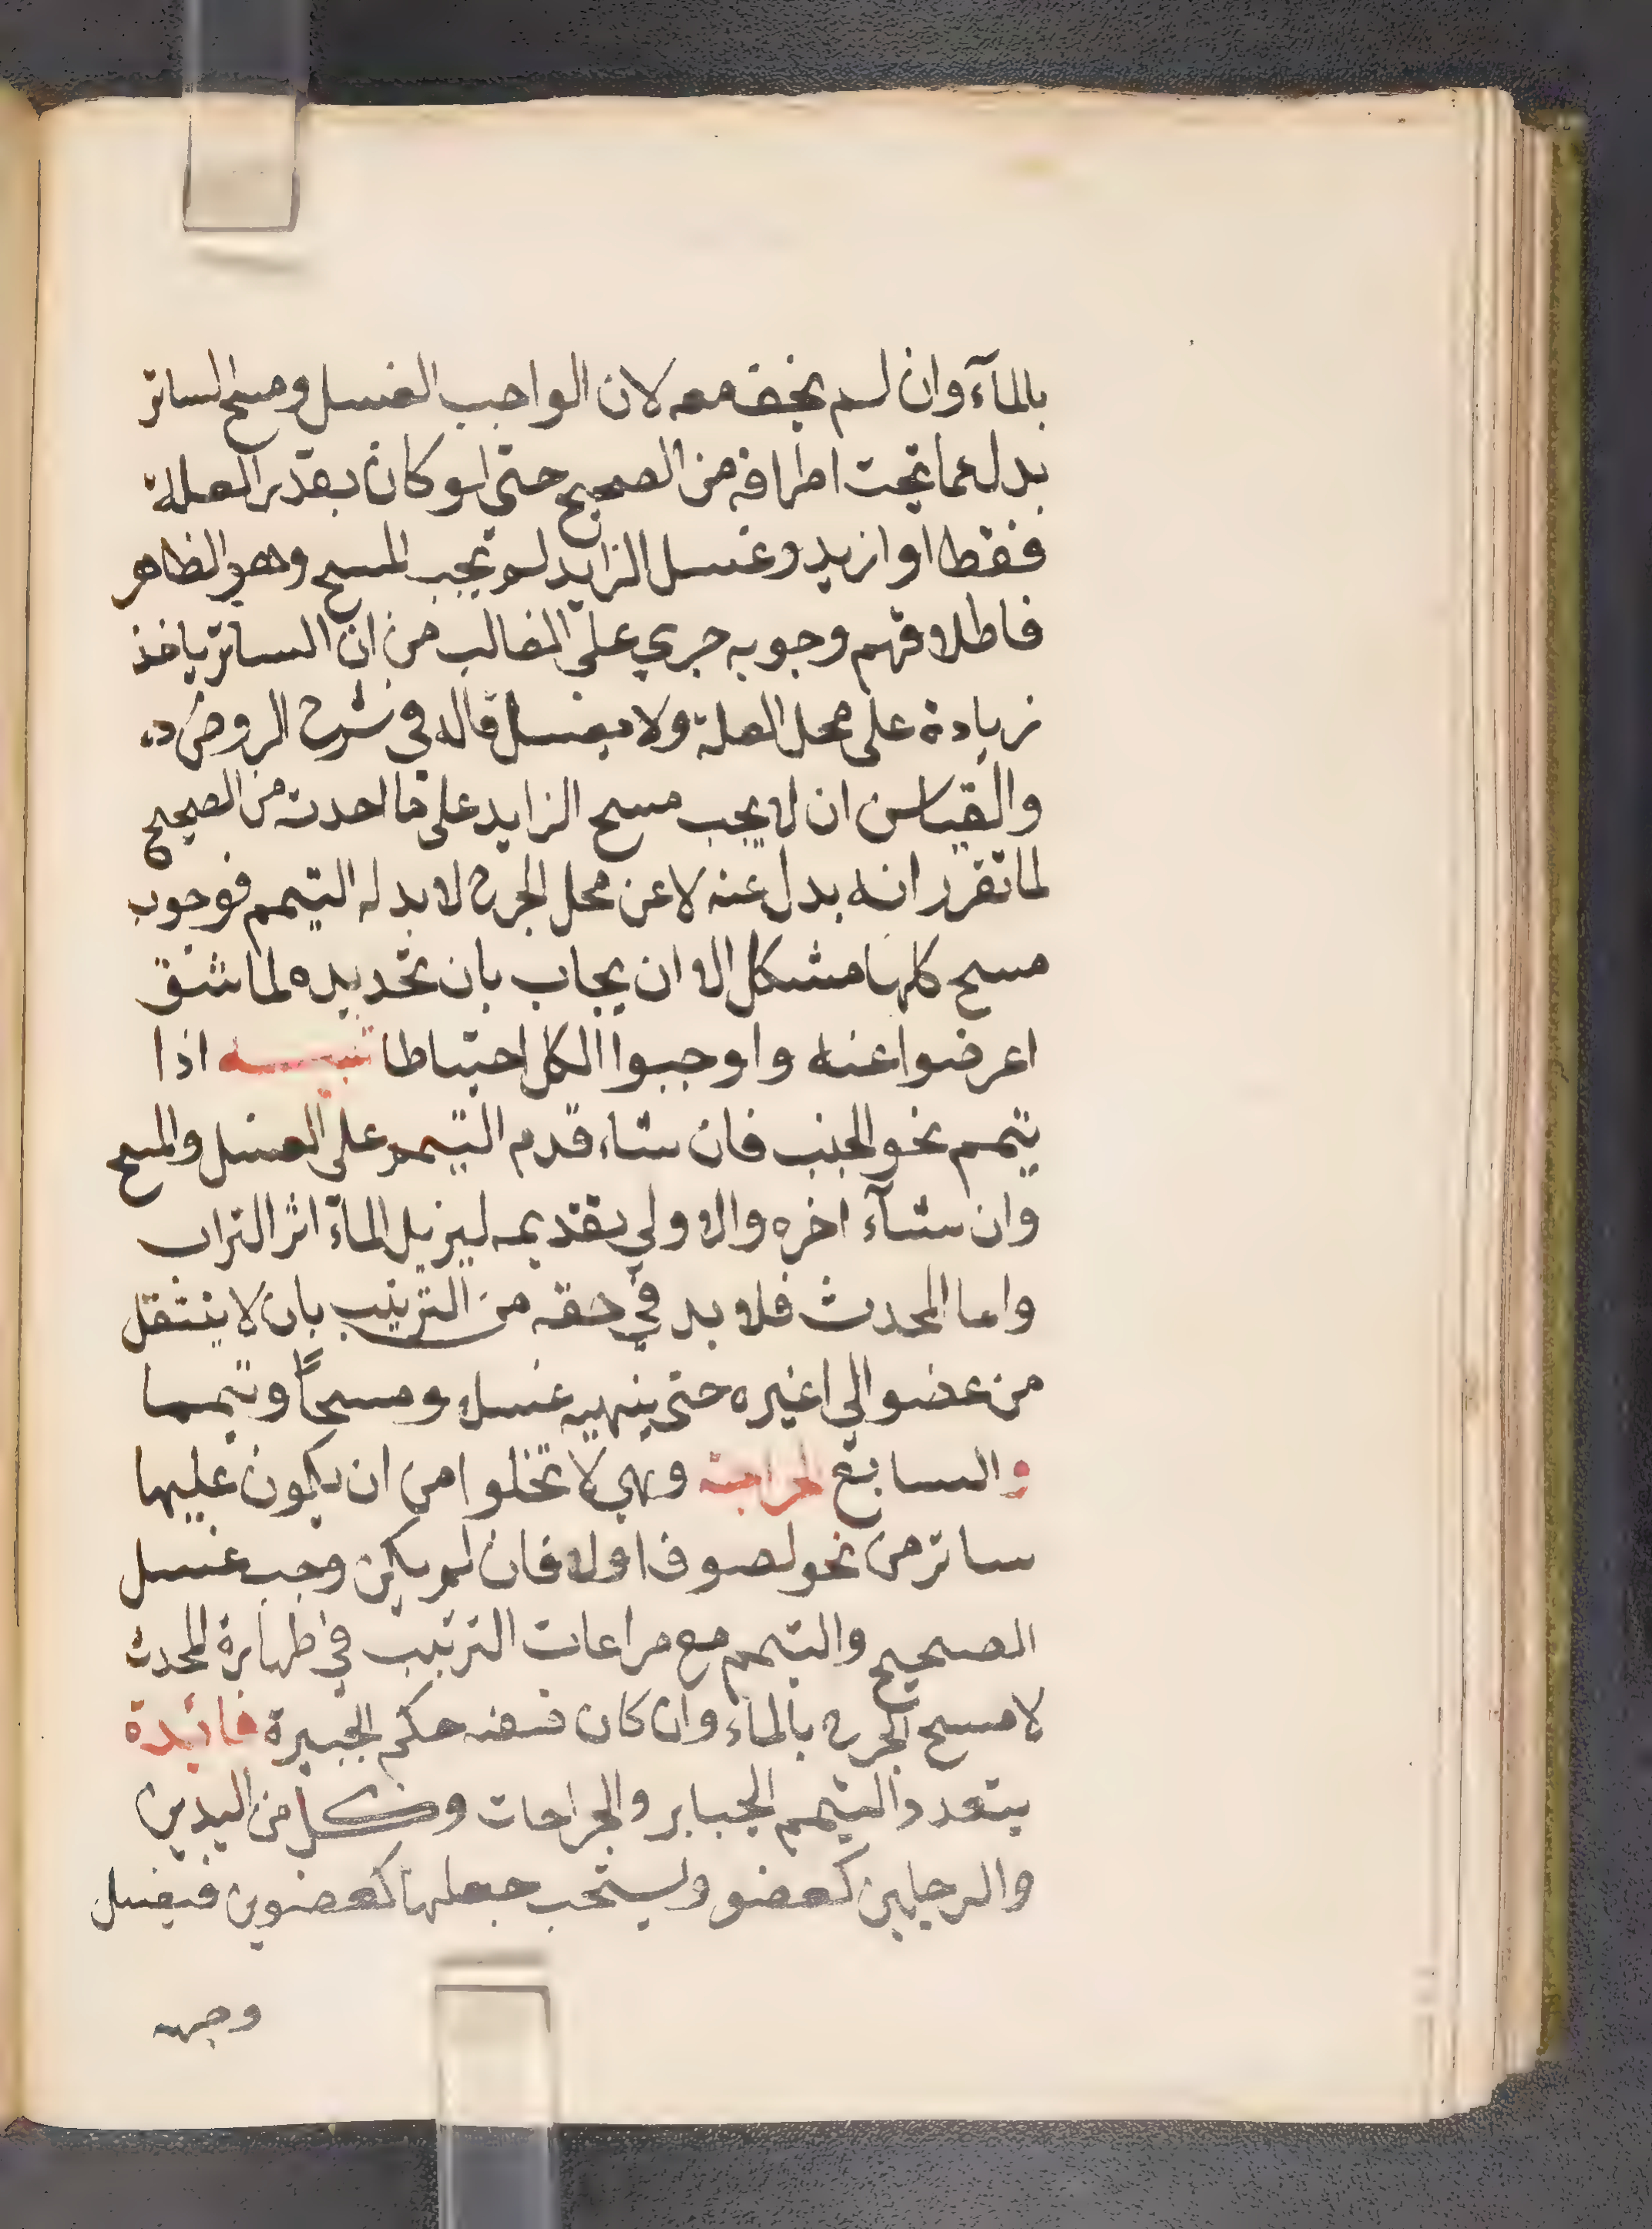 بالمآء وان لم يخف معه لان الواجب الغسل ومسح الساتر
بدل عما تحت اطرافه من الصحيح حتى لو كان بقدر العلة
فقط او ازيد وغسل الزايد لم يجب المسح وهو الظاهر
فاطلاقهم وجوبه جري على الغالب من ان الساتر ياخذ
زيادة على محل العلة ولا يغسل قاله في شرح الروض
والقياس ان لا يجب مسح الزايد على ما احدث من الصحيح
لما تقرر انه بدل عنه لا عن محل الجرح لا بدله التيمم فوجوب
مسح كلها مشكل الا ان يجاب بان تحديده لما شق
اعرضوا عنه واوجبوا الكل احتياطا تنبيه اذا
تيمم نحو الجنب فان شاء قدم التيمم على الغسل والمسح
وان شآء اخره والاولي تقديمه ليزيل الماء اثر التراب
واما المحدث فلا بد في حقه من الترتيب بان لا ينتقل
من عضو الي اغيره حتى ينهيه غسلا ومسحاً وتيمما
والسابع الجراحة وهي لا تخلوا من ان يكون عليها
ساتر من نحو لصوف اولا فان لم يكن وجب غسل
الصحيح والتيمم مع مراعات الترتيب في طهارة المحدث
لا مسح الجرح بالماء وان كان فيه حكم الجبيرة فائدة
يتعدد التيمم الجباير والجراحات وكل من اليدين
والرجلين كعضو ويستحب جعلها كعضوين فيغسل
وجهه